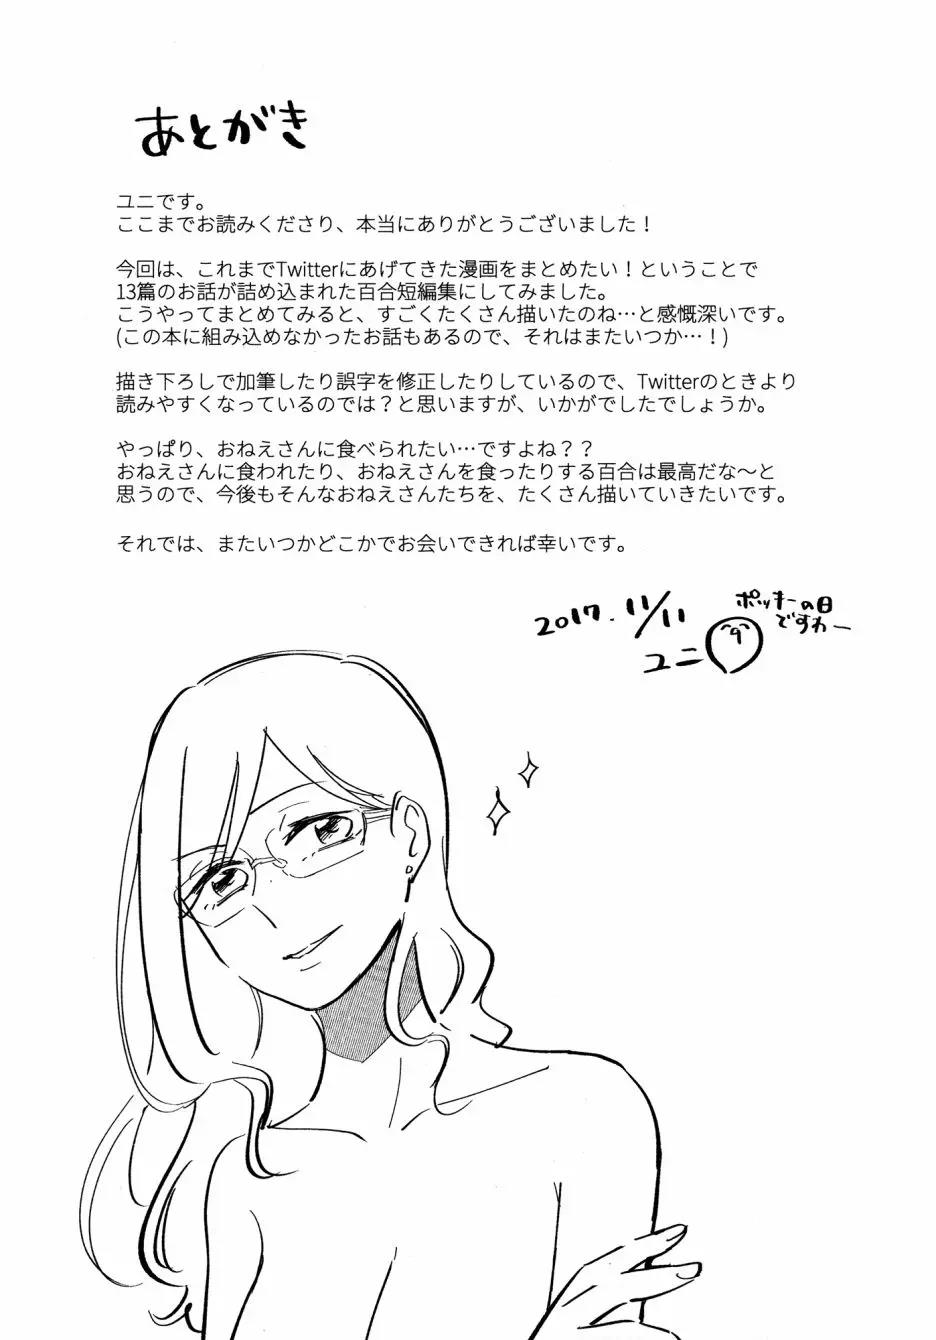 あとがき
ユニです。
ここまでお読みくださり、本当にありがとうございました！
今回は、これまでTwitterにあげてきた漫画をまとめたい！ということで
13篇のお話が詰め込まれた百合短編集にしてみました。
こうやってまとめてみると、すごくたくさん描いたのね…と感慨深いです。
(この本に組み込めなかったお話もあるので、それはまたいつか…！)
描き下ろしで加筆したり誤字を修正したりしているので、Twitterのときより
読みやすくなっているのでは？と思いますが、いかがでしたでしょうか。
やっぱり、おねえさんに食べられたい…ですよね？？
おねえさんに食われたり、おねえさんを食ったりする百合は最高だな～と
思うので、今後もそんなおねえさんたちを、たくさん描いていきたいです。
それでは、またいつかどこかでお会いできれば幸いです。
2017. 11/11
ユニ
ポッキーの日
ですわー